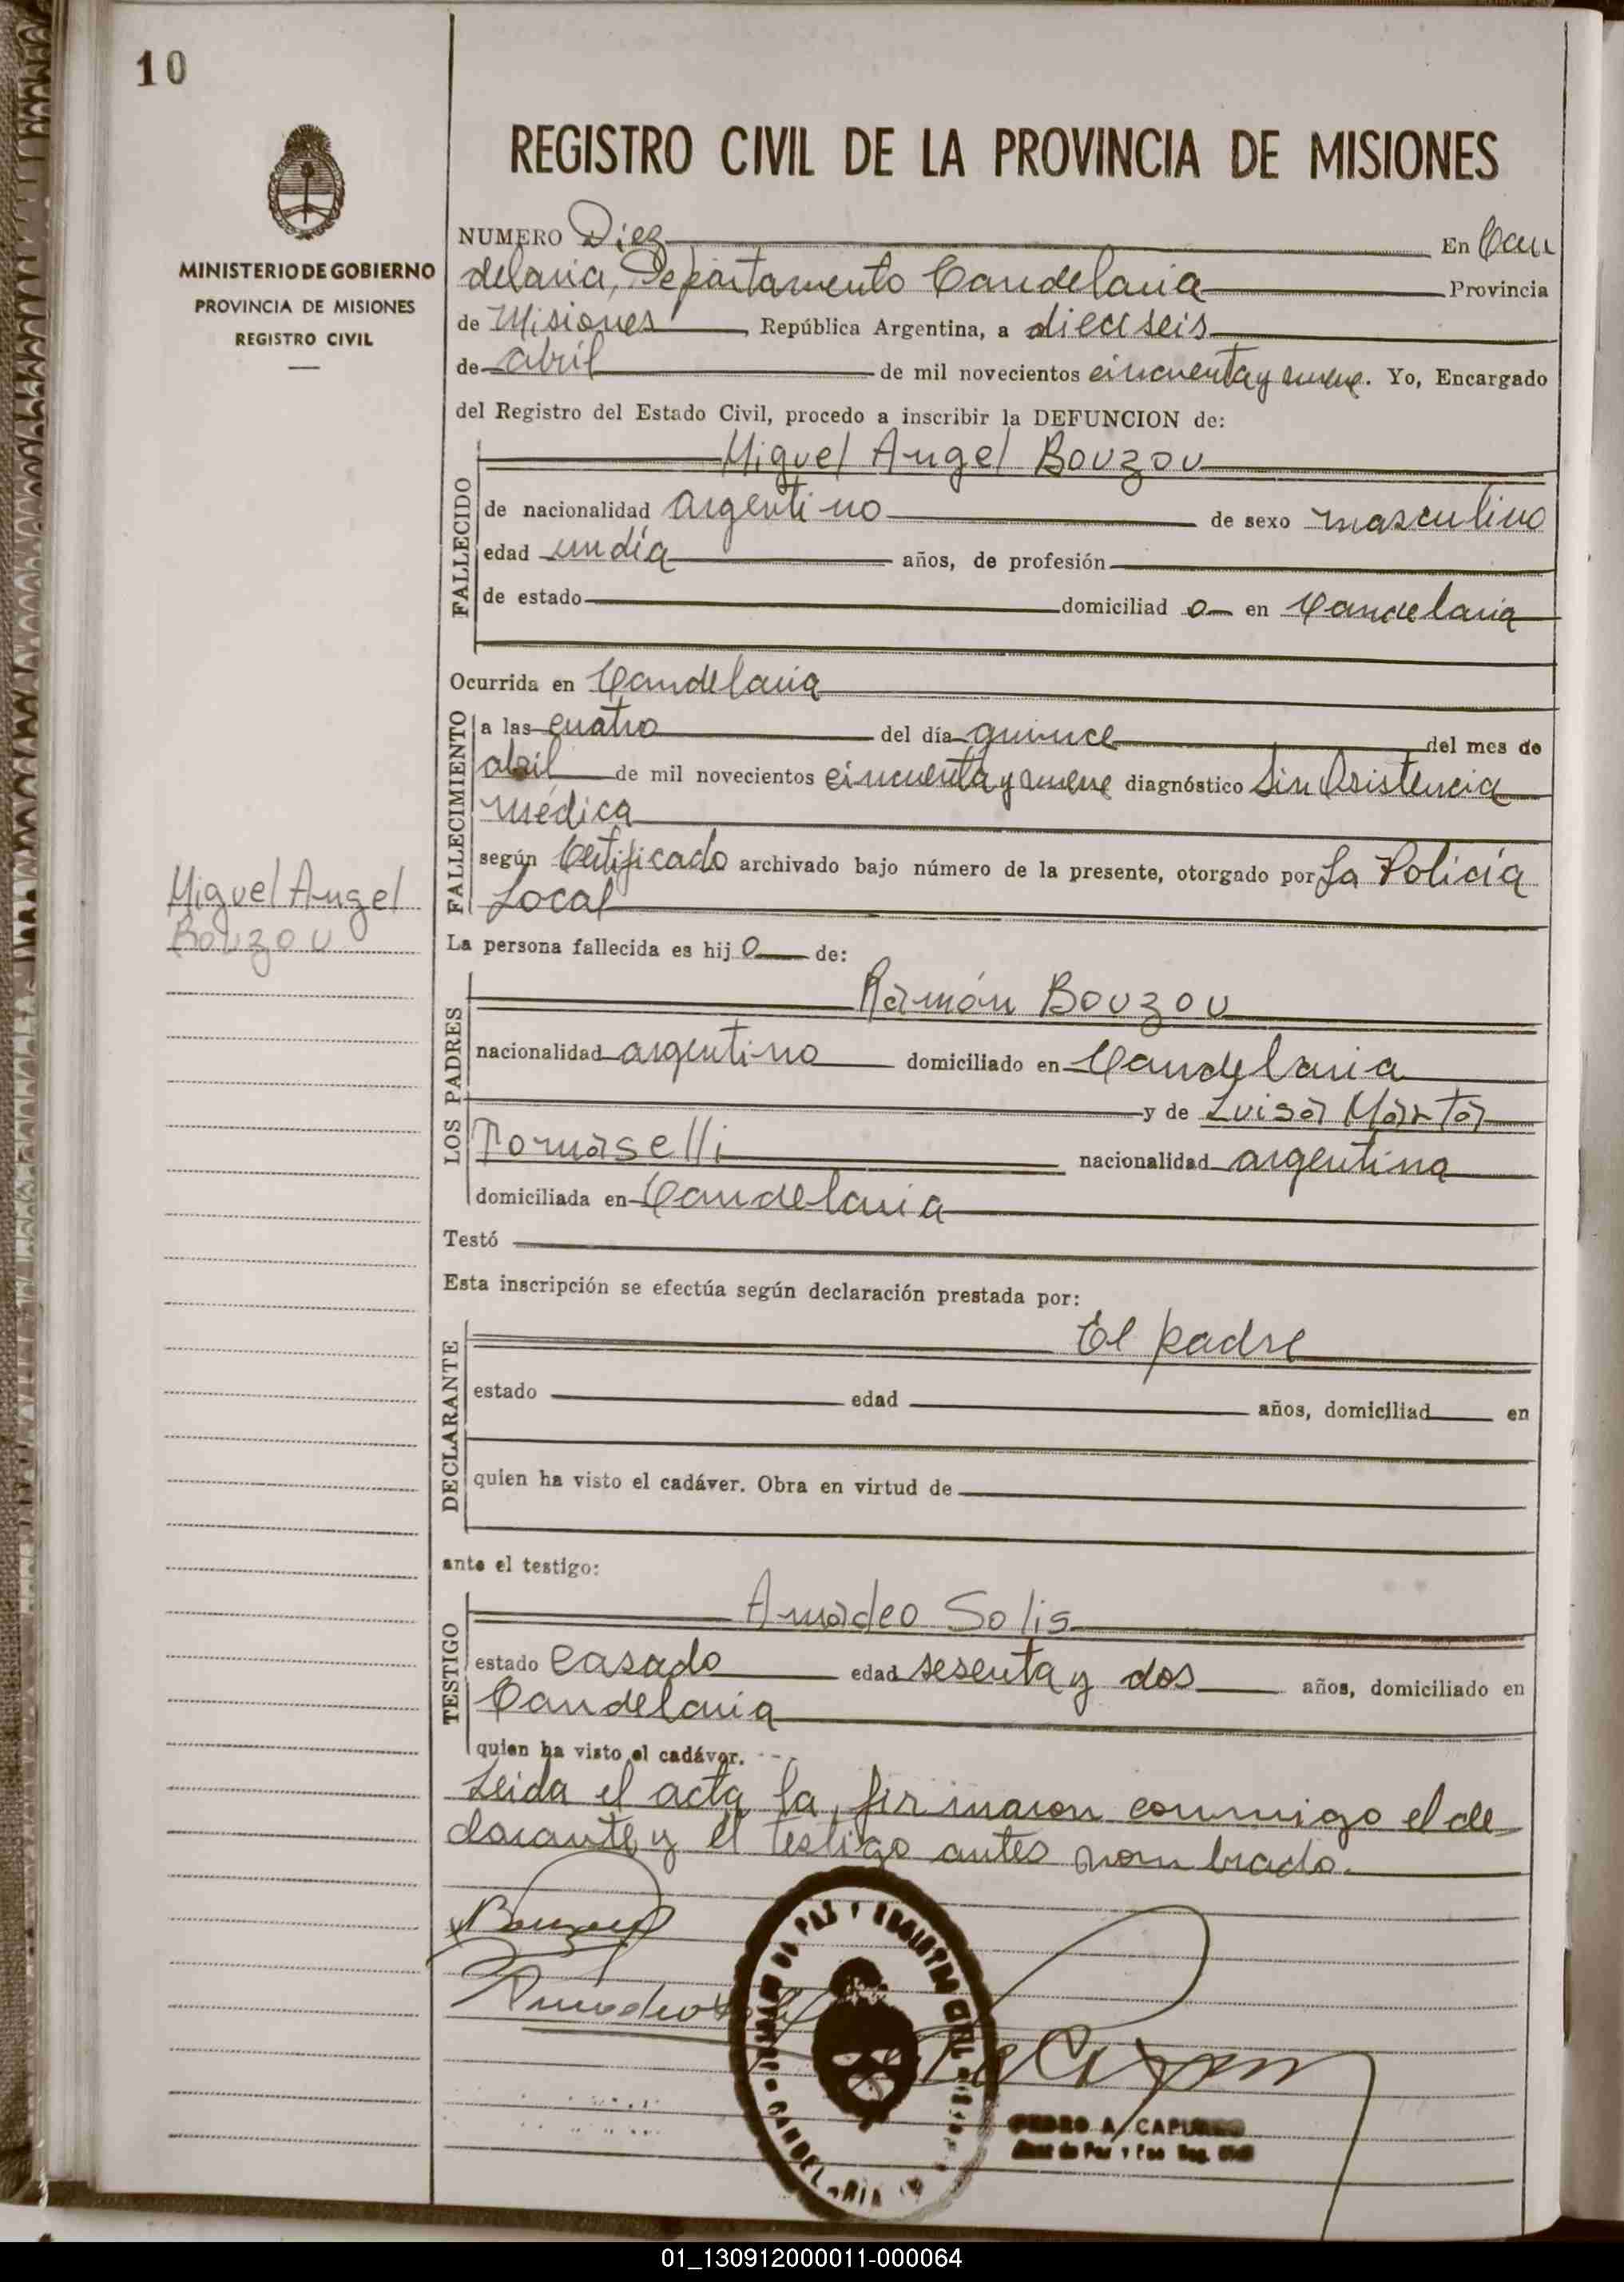 10
REGISTRO CIVIL DE LA PROVINCIA DE MISIONES
MINISTERIO DE GOBIERNO
PROVINCIA DE MISIONES
REGISTRO CIVIL
NUMERO Diez En Can
delaria, Departamento Candelaria Provincia
de Misiones, República Argentina, a dieciseis
de abril de mil novecientos cincuenta y nueve. Yo, Encargado
del Registro del Estado Civil, procedo a inscribir la DEFUNCION de:
FALLECIDO
Miguel Angel Bouzou
de nacionalidad argentino de sexo masculino
edad un día años, de profesión
de estado domiciliad o en Candelaria
Ocurrida en Candelaria
FALLECIMIENTO
a las cuatro del día quince del mes de
abril de mil novecientos cincuenta y nueve diagnóstico Sin Asistencia
médica
según Certificado archivado bajo número de la presente, otorgado por La Policía
Local
Miguel Angel
Bouzou
La persona fallecida es hij o de:
LOS PADRES
Ramón Bouzou
nacionalidad argentino domiciliado en Candelaria
y de Luisa Marta
Tomaselli nacionalidad argentina
domiciliada en Candelaria
Testó
Esta inscripción se efectúa según declaración prestada por:
DECLARANTE
El padre
estado edad años, domiciliad en
quien ha visto el cadáver. Obra en virtud de
ante el testigo:
TESTIGO
Amadeo Solis
estado casado edad sesenta y dos años, domiciliado en
Candelaria
quien ha visto el cadáver.
Leida el acta la firmaron conmigo el de
clarante y el testigo antes nombrado.
Bouzou
Amadeo Solis
JUZGADO DE PAZ Y REGISTRO CIVIL
CANDELARIA
PEDRO A. CAPURRO
Juez de Paz y Enc. Reg. Civil
01_130912000011-000064